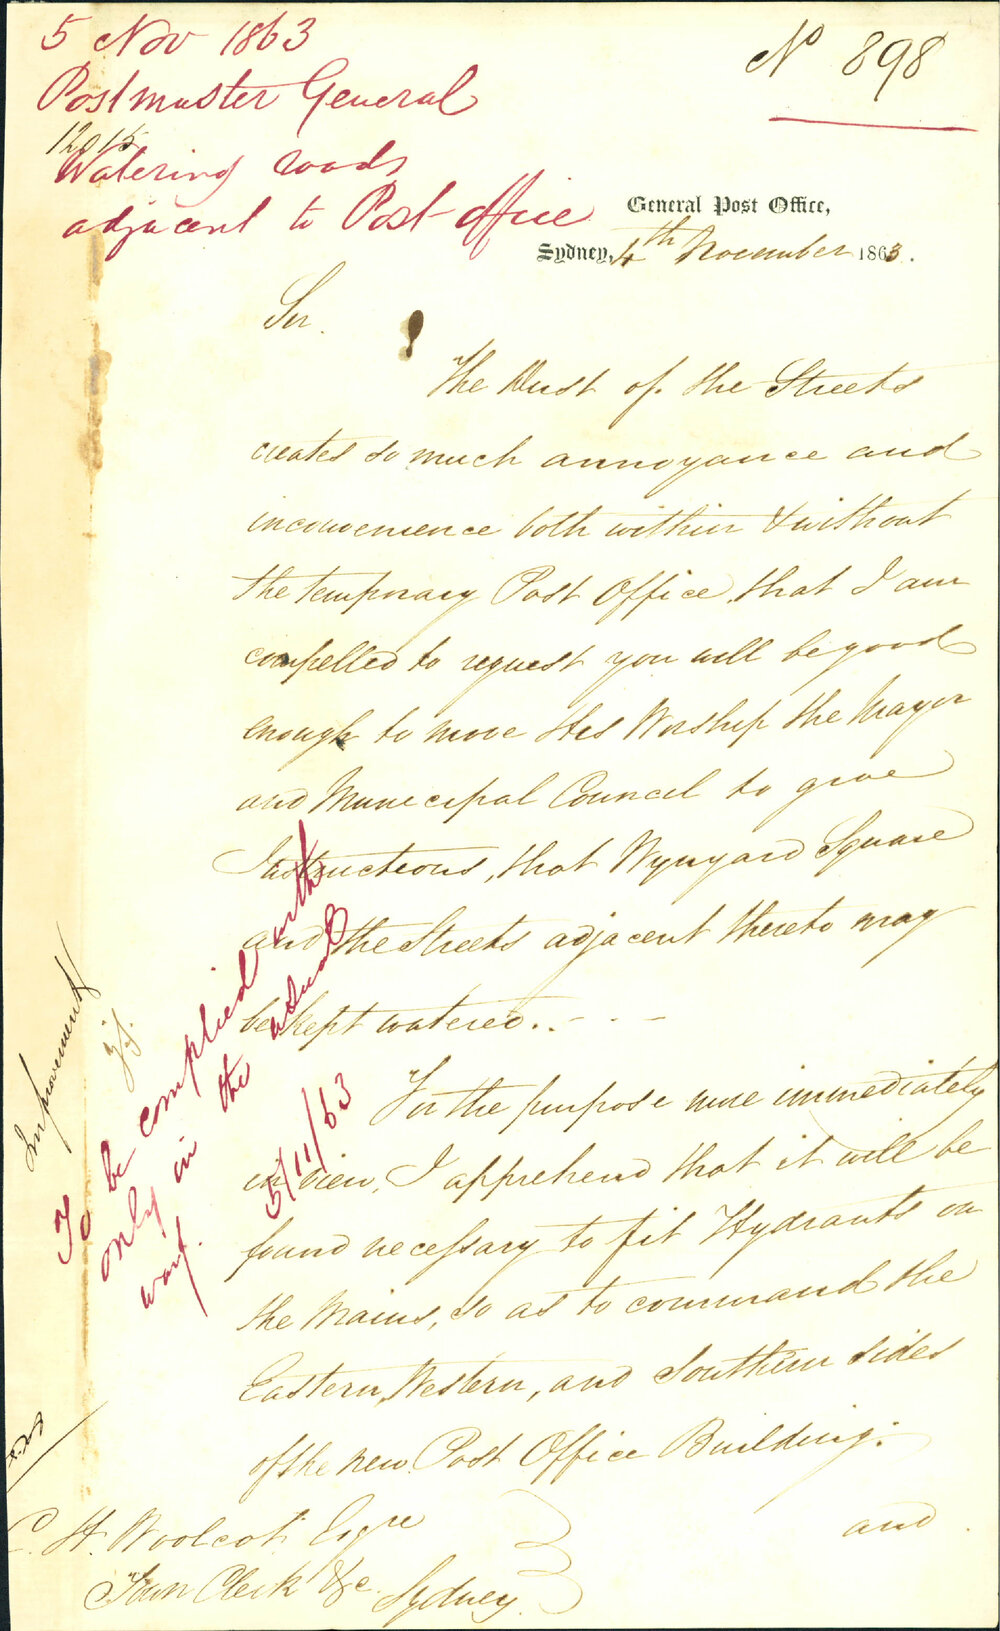 5 Nov 1863
Postmaster General
12015
Watering roads
adjacent to Post office
No 898
General Post Office,
Sydney, 4th November 1863.
Sir.
The Dust of the Streets
creates so much annoyance and
inconvenience both within & without
the temporary Post Office, that I am
compelled to request you will be good
enough to move His Worship the Mayor
and Municipal Council to give
Instructions, that Wynyard Square
and the Streets adjacent thereto may
be kept watered..- - -
For the purpose more immediately
in view, I apprehend that it will be
found necessary to fit Hydrants on
the Mains, so as to command the
Eastern, Western, and Southern sides
of the new Post Office Building:
and
C. H. Woolcott Esqre
Town Clerk &c. Sydney.
Improvement
To be complied with
only in the usual
way.
5/11/63